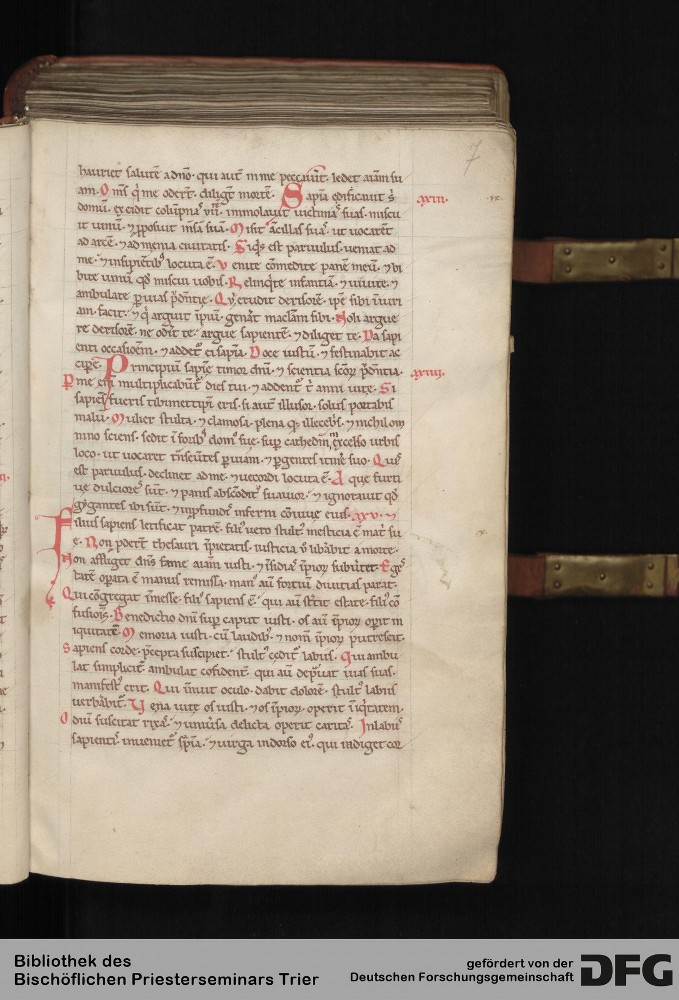 7
hauriet salutē a dn̄o · qui aut̄ in me peccauit̄ · ledet aīam su
am · Om̄s q̇ me odert̄ · diligt̄ mortē · Sapīa edificauit s̄
domū · excidit colūpna᷒ vii · immolauit uictima᷒ suas · miscu
it uinū · ⁊ p̄posuit m̄sā suā · Misit ancillas sua᷒ · ut uocaret
ad arcē · ⁊ ad menia ciuitatis · Siq̇s est paruulus · ueniat ad
me · ⁊ insipiētib᷒ locuta ē · Venite cōmedite panē meū · ⁊ bi
bite uinū qd̄ miscui uobis · Relinq̇te infantiā · ⁊ uiuite · ⁊
ambulate ꝑ uias p̄dn̄tie · Qui erudit derisorē · ip̄e sibi iniuri
am facit · ⁊ q̇ arguit ipīum · gen̄at maclām sibi · Noli argue
re derisorē · ne odit̄ te · argue sapientē · ⁊ diliget te · Da sapi
enti occasioēm · ⁊ addet᷒ ei sapīa · Doce iustū · ⁊ festinabit ac
cipe · Principiū sapīe timor dn̄i · ⁊ scientia sc̄oꝝ p̄dentia ·
ꝑ me eni multiplicabūt᷒ dies tui · ⁊ addent᷒ t̄ anni uite · Si
sapiēs fueris tibimetipī eris · si aut̄ illusor · solus portabis
malū · Mulier stulta · ⁊ clamosa · plena q᷒ illecebris · ⁊ nichil om
nino sciens · sedit ī forib᷒ dom᷒ sue · sup̄ cathedrā ī excelso urbis
loco · ut uocaret trāseūtes ꝑ uiam · ⁊ ꝑgentes itin̄e suo · Qui
est paruulus · declinet ad me · ⁊ uecordi locuta ē · Aque furti
ue dulciores sūt · ⁊ panis abscōdit᷒ suauior · ⁊ ignorauit qd̄
gygantes ibi sūt · ⁊ in p̄fundis inferni cōuiue eius · xxv · ⁊
Filius sapiens letificat patrē · fili᷒ uero stult᷒ mesticia ē matͥ su
e · Non p̄dert̄ thesauri īpietatis · iusticia ū libabit a morte ·
Non affliget dn̄s fame aīam iusti · ⁊ īsidia᷒ īpioꝝ subuertet · Eges
tatē opata ē manus remissa · man᷒ aū fortiū diuitias parat ·
Qui cōgregat ī messe · fili᷒ sapiens ē · qui aū st̄tit estate · fili᷒ cō
fusiōis · Benedictio dn̄i sup̄ caput iusti · os aū īpioꝝ opit in
iquitatē · Memoria iusti · cū laudib᷒ · ⁊ nom̄ īpioꝝ putrescet ·
Sapiens corde · p̄cepta suscipiet · stult᷒ cedit᷒ labiis · Qui ambu
lat simplicit̄ · ambulat cōfident̄ · qui aū dep̄uat uias suas ·
manifest᷒ erit · Qui īnuit oculo · dabit dolorē · stult᷒ labiis
uerbabit᷒ · Uena uite os iusti · ⁊ os īpioꝝ · operit iniq̇tatem ·
Odiū suscitat rixa᷒ · ⁊ uniūsa delicta operit caritas · In labiis
sapientis inueniet᷒ sapīa · ⁊ uirga in dorso ei᷒ · qui indiget cor
xxiii.
xxiiii.
Bibliothek des
Bischöflichen Priesterseminars Trier
gefördert von der
Deutschen Forschungsgemeinschaft
DFG